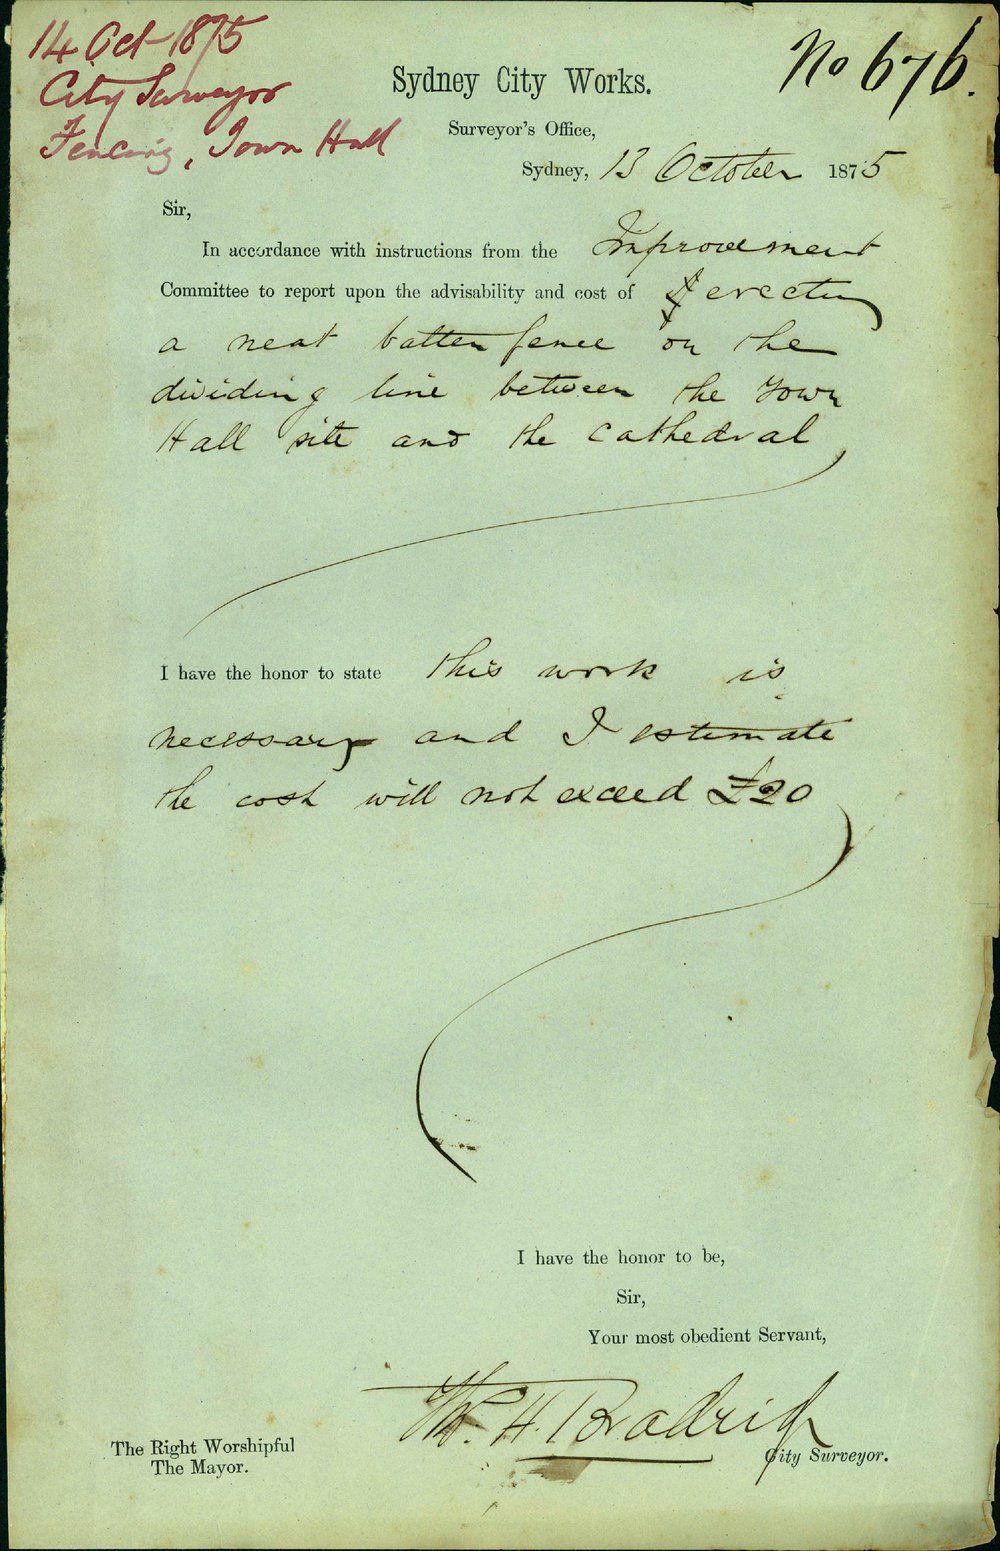 14 Oct 1875
City Surveyor
Fencing, Town Hall
No 676.
Sydney City Works.
Surveyor's Office,
Sydney, 13 October 1875
Sir,
In accordance with instructions from the Improvement
Committee to report upon the advisability and cost of erecting
a neat batten fence on the
dividing line between the Town
Hall site and the Cathedral
I have the honor to state this work is
necessary and I estimate
the cost will not exceed £20
I have the honor to be,
Sir,
Your most obedient Servant,
W. H.
City Surveyor.
The Right Worshipful
The Mayor.